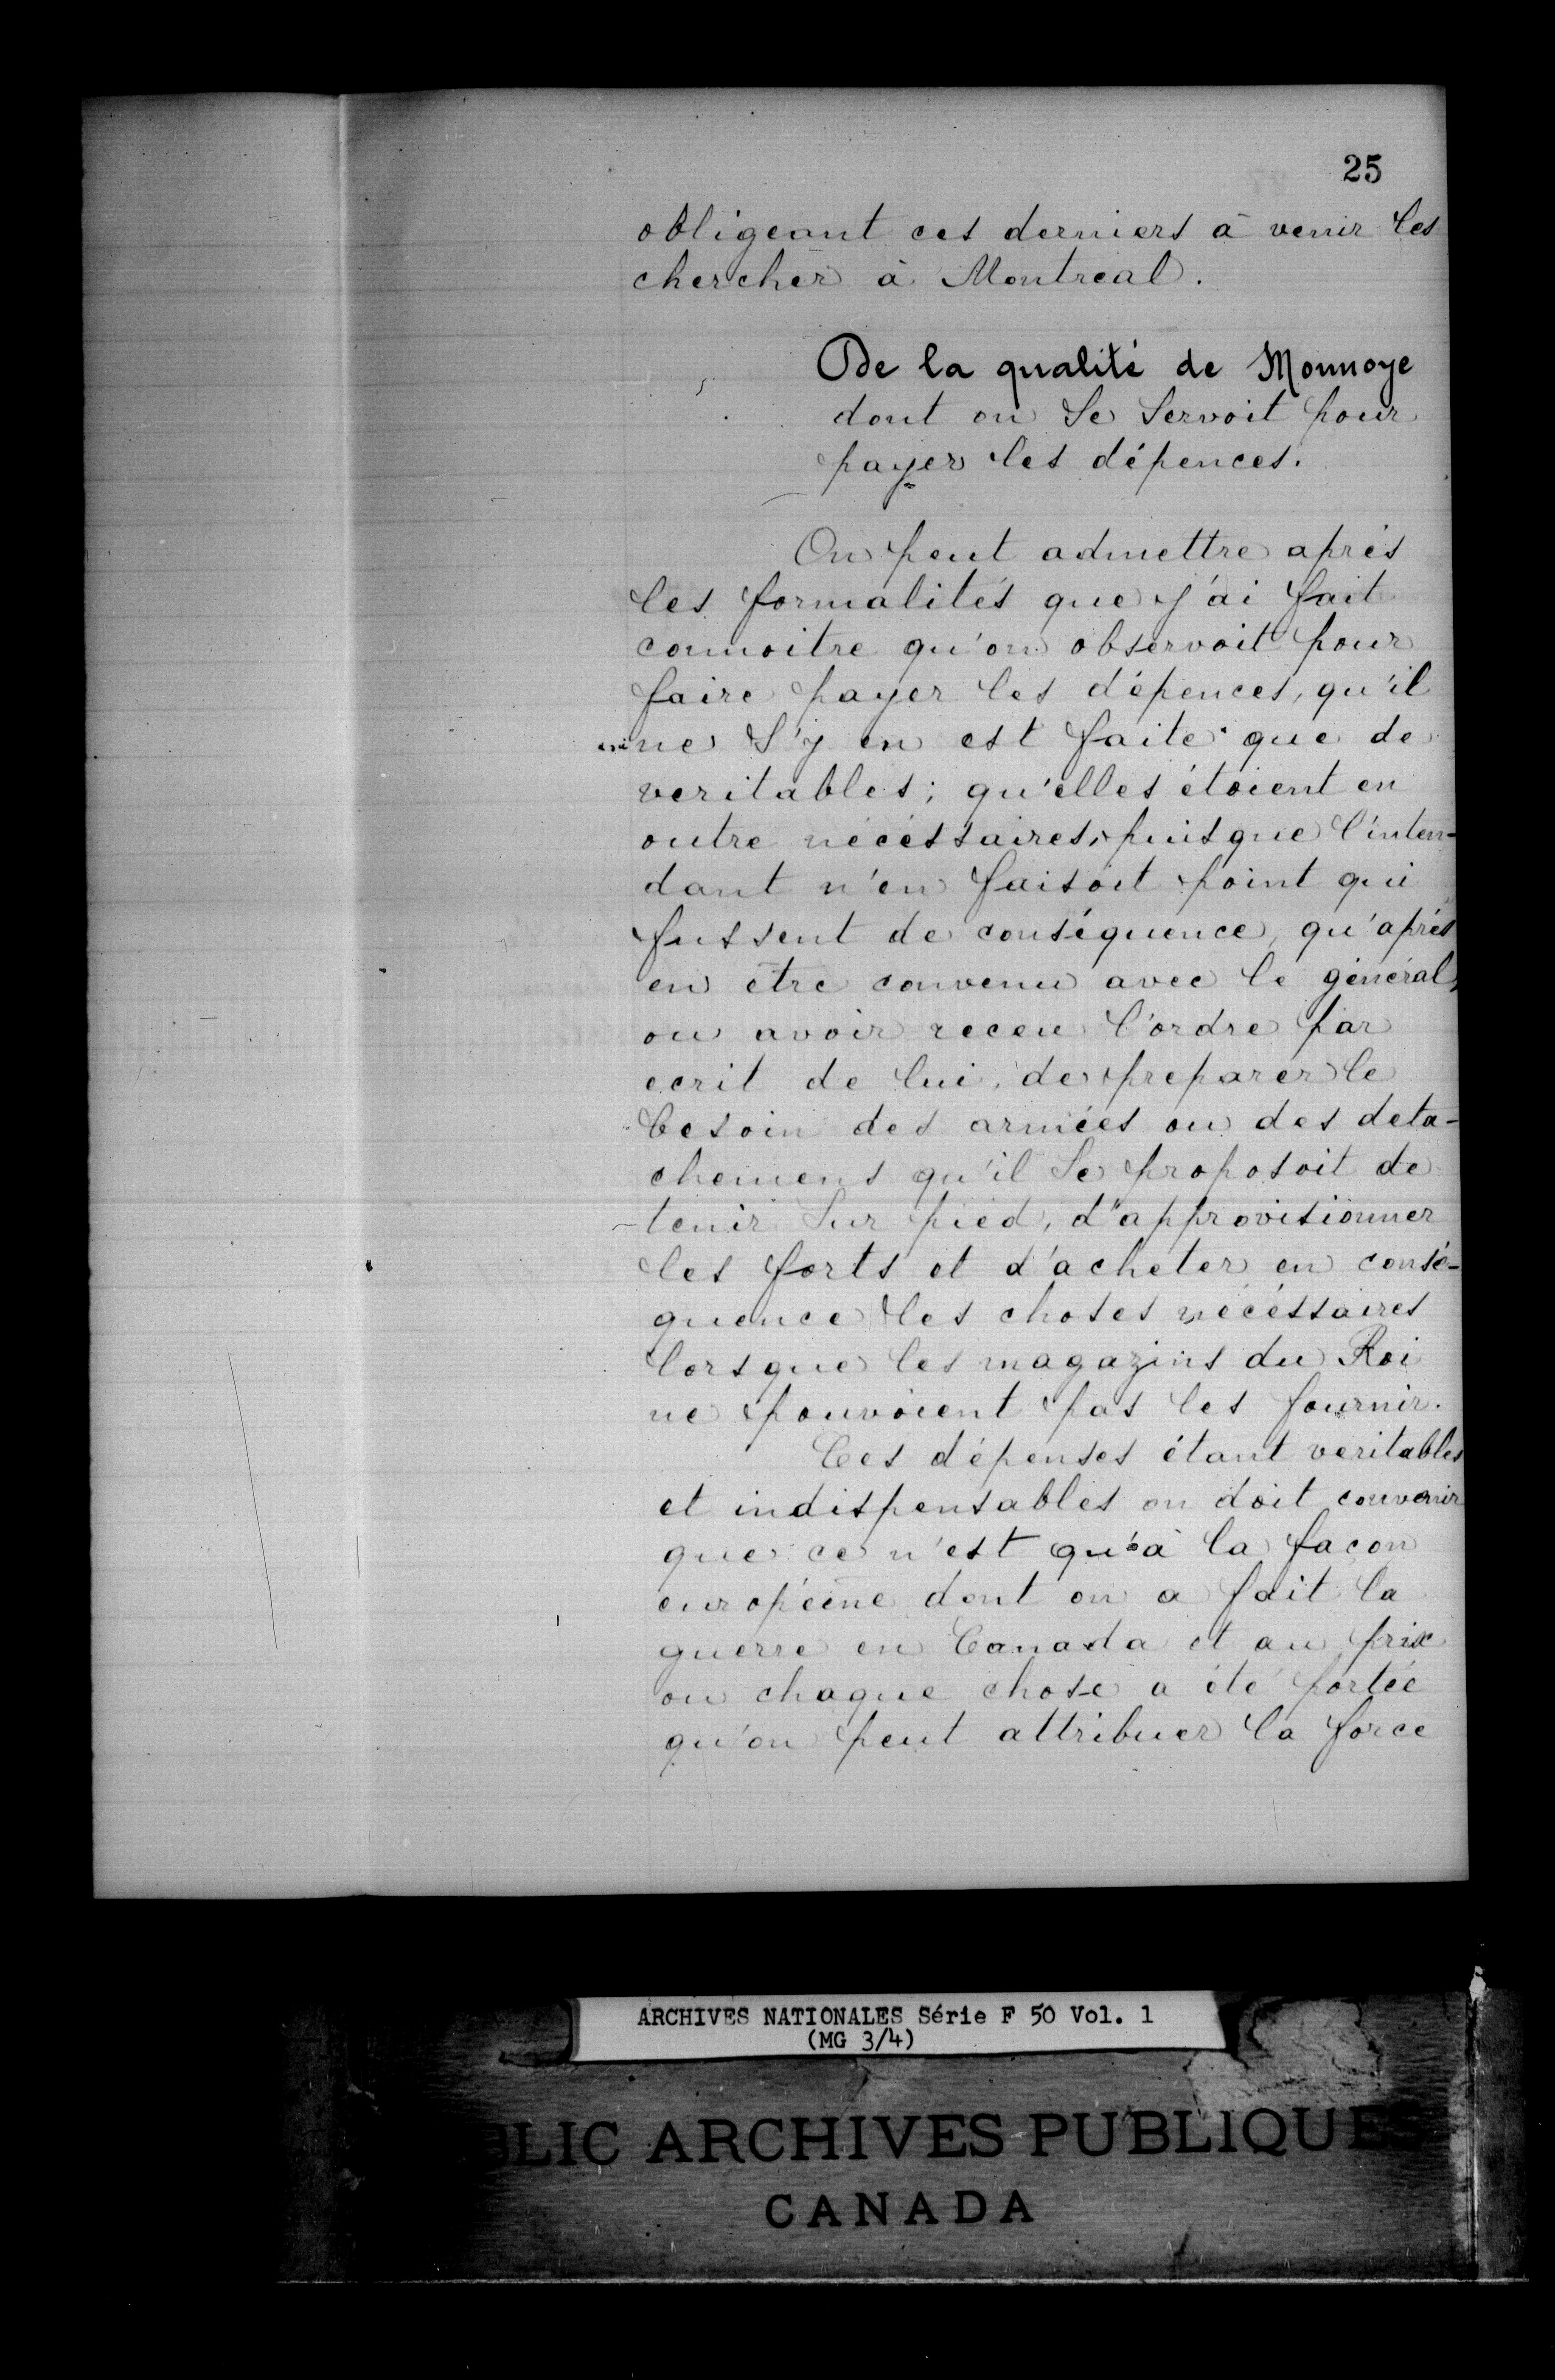 25
obligeant ces derniers à venir les
chercher à Montreal.
De la qualité de Monnoye
dont on se servoit pour
payer les dépences.
On peut admettre après
les formalités que j'ai fait
connoitre qu'on observoit pour
faire payer les dépences, qu'il
ne s'y en est faite que de
veritables; qu'elles étoient en
outre nécéssaires, puisque l'inten-
dant n'en faisoit point qui
fussent de conséquence, qu'après
en être convenu avec le général,
ou avoir receu l'ordre par
ecrit de lui, de preparer le
besoin des armées ou des deta-
chemens qu'il se proposoit de
tenir sur pied, d'approvisionner
les forts et d'acheter en consé-
quence les choses nécéssaires
lorsque les magazins du Roi
ne pouvoient pas les fournir.
Ces dépenses étant veritables
et indispensables on doit convenir
que ce n'est qu'à la façon
européene dont on a fait la
guerre en Canada et au prix
ou chaque chose a été portée
qu'on peut attribuer la force
ARCHIVES NATIONALES Série F 50 Vol. 1
(MG 3/4)
BLIC ARCHIVES PUBLIQUES
CANADA